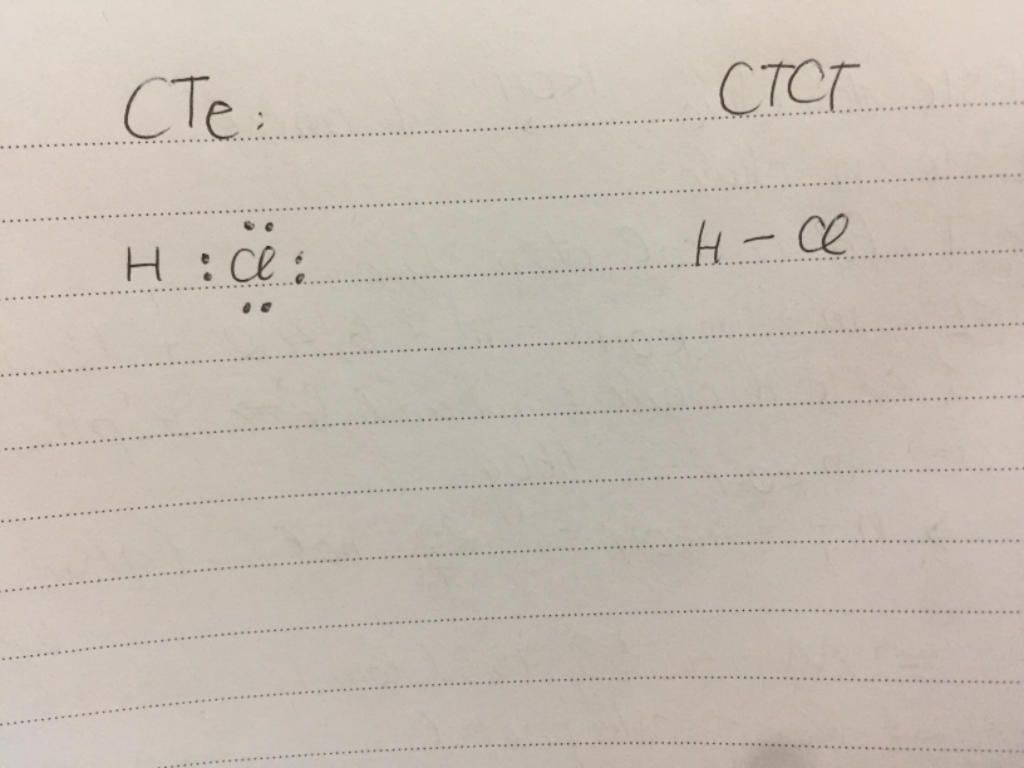 CTe: CTCT
H :C̤̈l: H – Cl